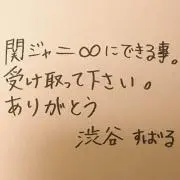 関ジャニ∞にできる事。
受け取って下さい。
ありがとう
渋谷 すばる